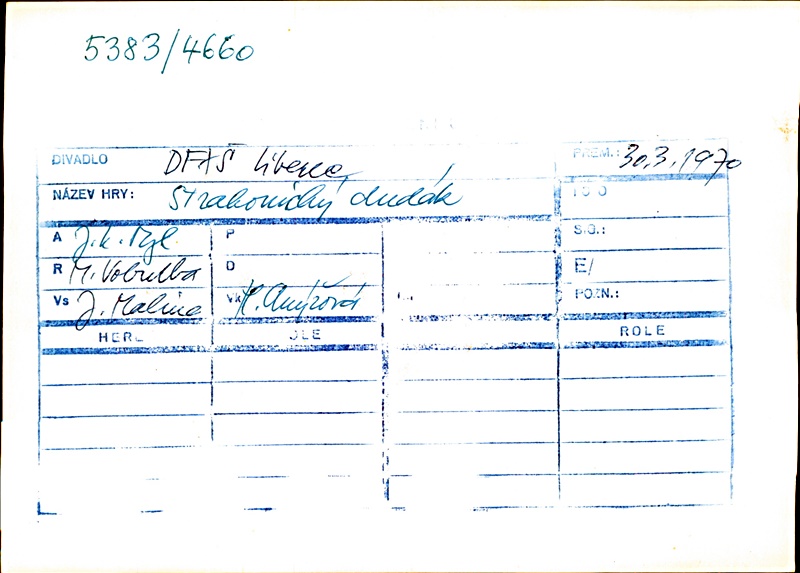 5383/4660
DIVADLO DFXŠ Liberec PREM.: 30.3.1970
NÁZEV HRY: Strakonický dudák
A J.K. Tyl P S.G.:
R M. Vobruba D E/
Vs J. Malina Vk POZN.:
ROLE